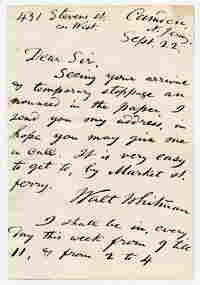 431 Stevens st.
cor West.
Camden
N. Jersey.
Sept. 22.
Dear Sir,
Seeing your arrival
& temporary stoppage an
nounced in the paper I
send you my address, in
hope you may give me
a call. It is very easy
to get to, by Market st.
ferry.
Walt Whitman
I shall be in, every
day this week from 9 till
11, & from 2 to 4